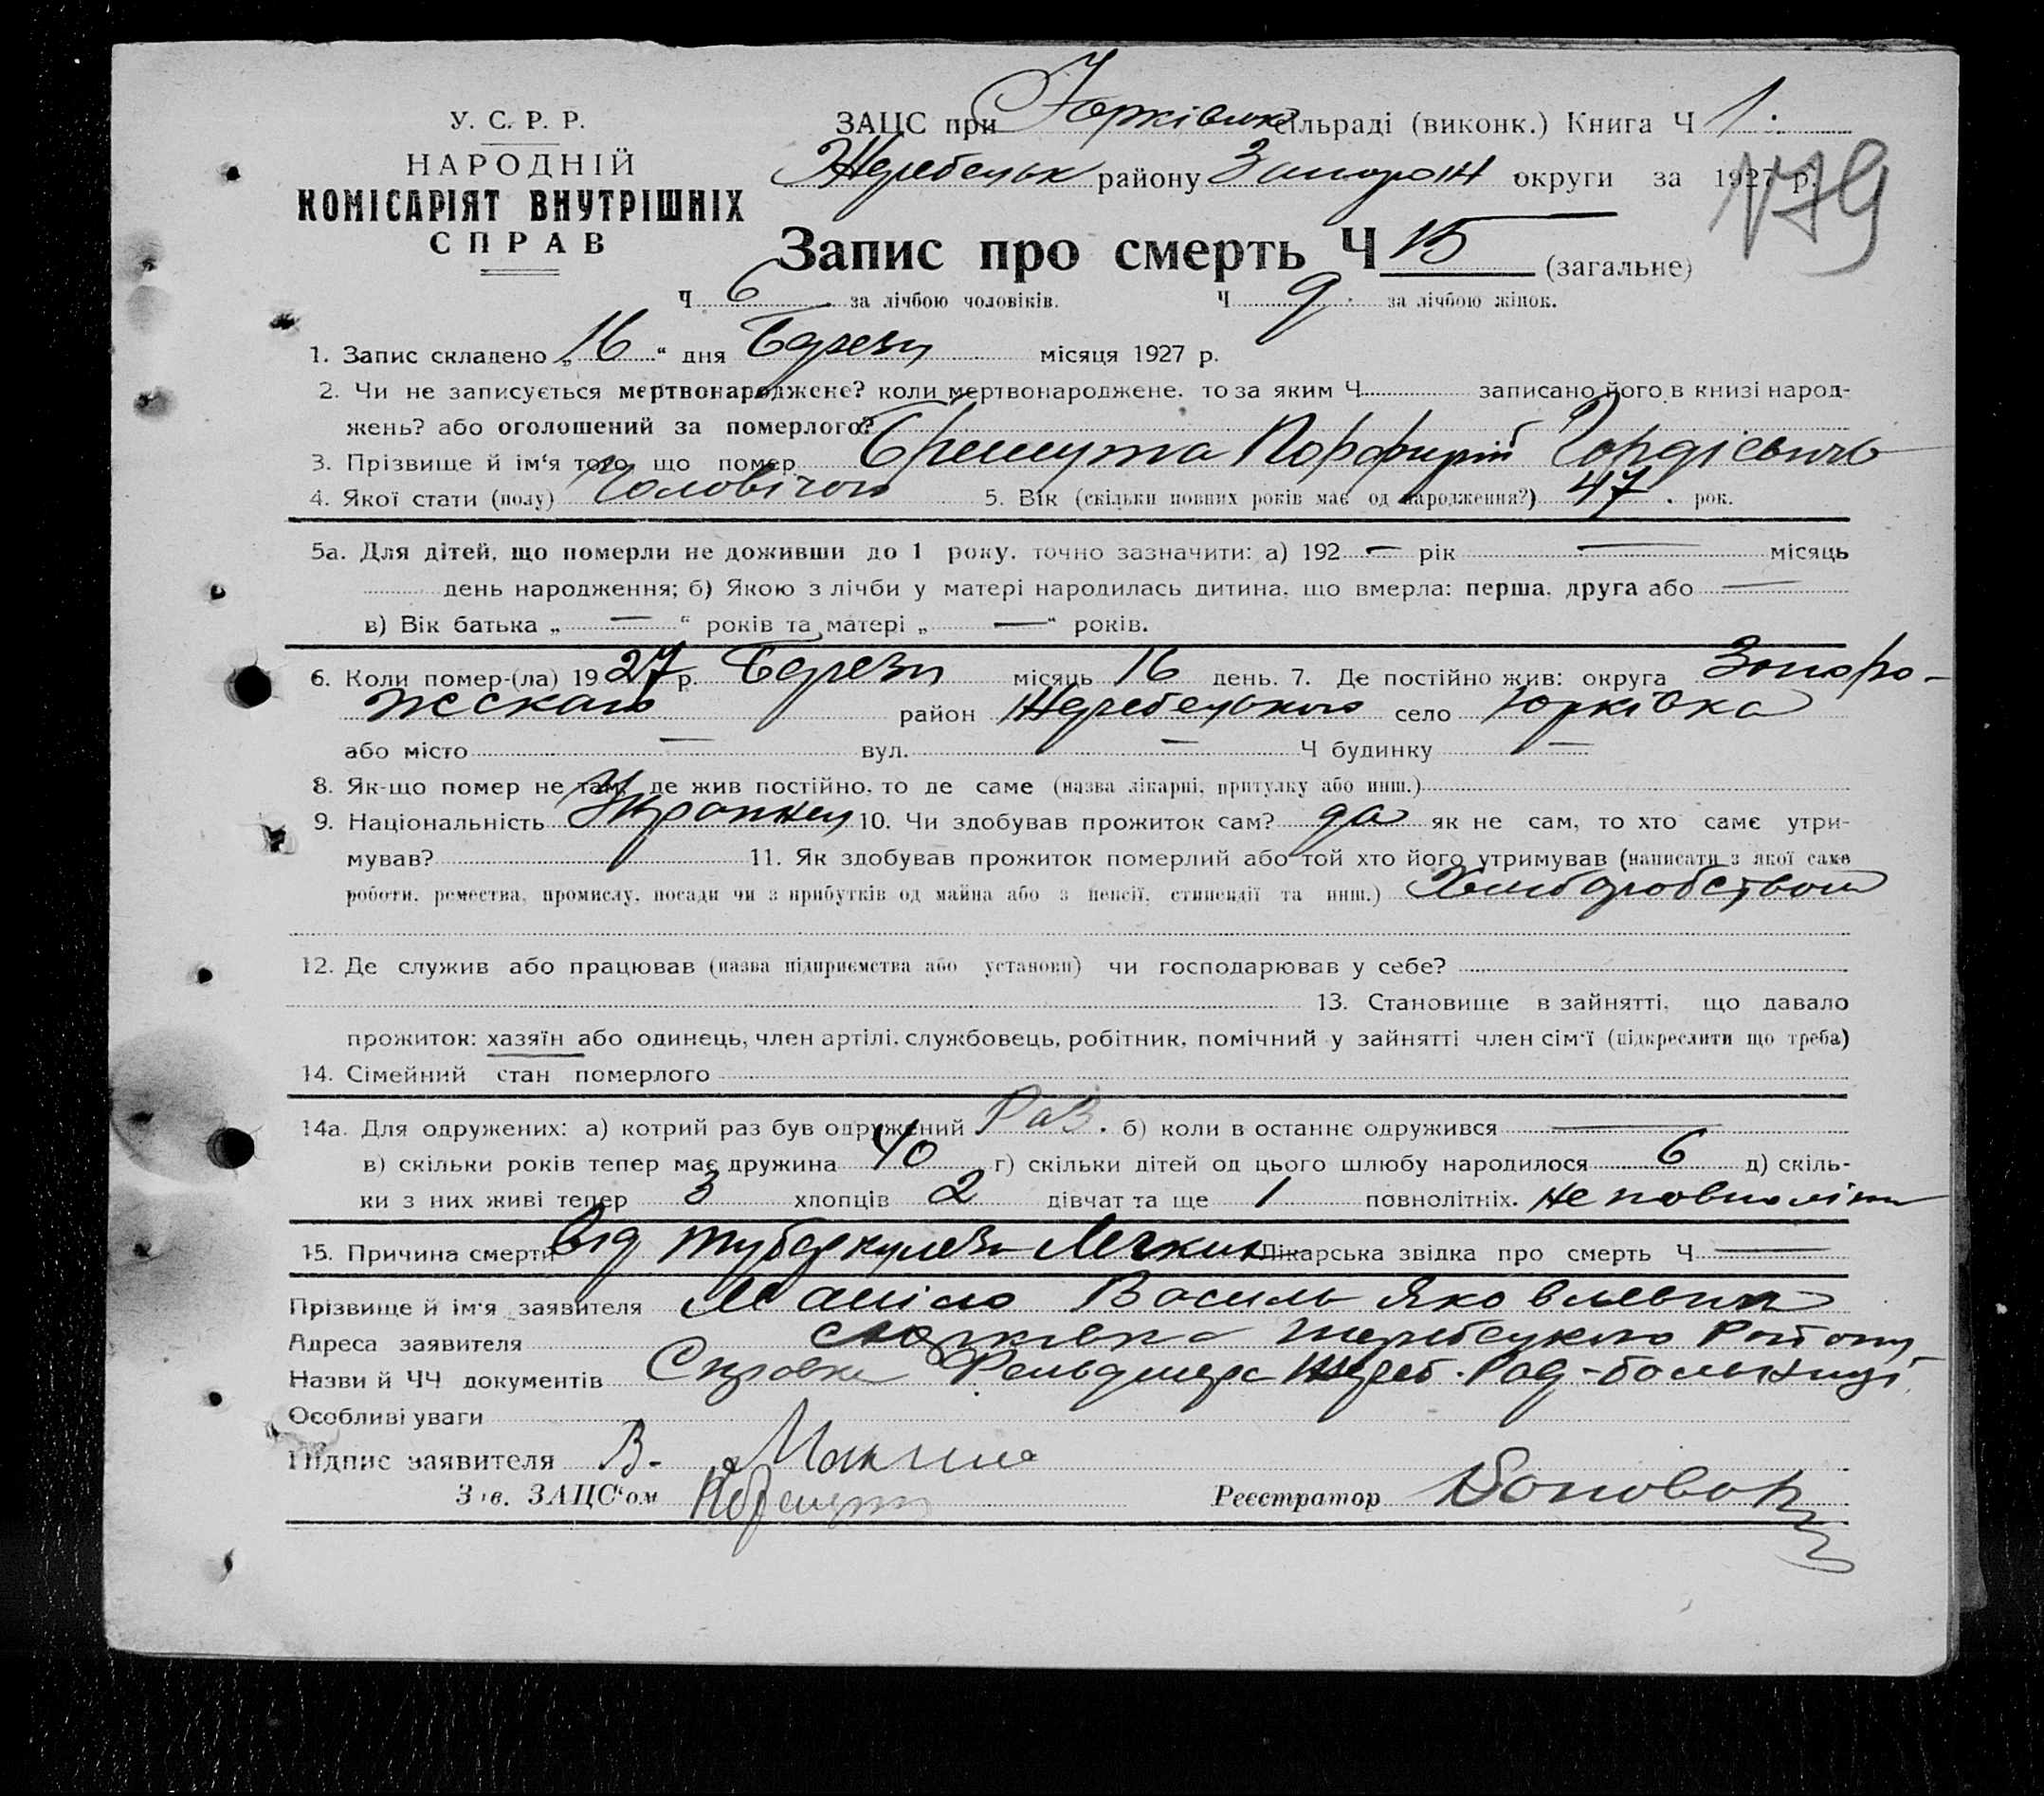 У. С. Р. Р.
НАРОДНІЙ
КОМІСАРІЯТ ВНУТРІШНІХ
СПРАВ
ЗАЦС при Юрківськ сільраді (виконк.) Книга Ч 1.
Жеребецьк району Запорож округи за 1927 р.
179
Запис про смерть Ч 15 (загальне)
Ч 6 за лічбою чоловіків. Ч 9 за лічбою жінок.
1. Запис складено „16“ дня Березн місяця 1927 р.
2. Чи не записується мертвонароджене? коли мертвонароджене, то за яким Ч записано його в книзі народ-
жень? або оголошений за померлого?
3. Прізвище й ім'я того, що помер Брешута Порфирій Гордієвичь
4. Якої стати (полу) Чоловічого 5. Вік (скільки повних років має од народження?) 47. рок.
5а. Для дітей, що померли не доживши до 1 року, точно зазначити: а) 192 — рік — місяць
день народження; б) Якою з лічби у матері народилась дитина, що вмерла: перша, друга або —
в) Вік батька „ — “ років та матері „ — “ років.
6. Коли помер-(ла) 1927 р. Березн місяць 16 день. 7. Де постійно жив: округа Запоро-
жскаго район Жеребецького село Юрківка
або місто — вул. — Ч будинку —
8. Як-що помер не там, де жив постійно, то де саме (назва лікарні, притулку або инш.)
9. Національність 10. Чи здобував прожиток сам? да як не сам, то хто саме утри-
мував? 11. Як здобував прожиток померлий або той хто його утримував (написати з якої саме
роботи, ремества, промислу, посади чи з прибутків од майна або з пенсії, стипендії та инш.) Хлиборобством
12. Де служив або працював (назва підприємства або установи) чи господарював у себе?
13. Становище в зайнятті, що давало
прожиток: хазяїн або одинець, член артілі, службовець, робітник, помічний у зайнятті член сім'ї (підкреслити що треба)
14. Сімейний стан померлого
14а. Для одружених: а) котрий раз був одружений Раз. б) коли в останнє одружився —
в) скільки років тепер має дружина 40 г) скільки дітей од цього шлюбу народилося 6 д) скіль-
ки з них живі тепер 3 хлопців 2 дівчат та ще 1 повнолітніх. не повноліти
15. Причина смерти Від туберкулеза Легких Лікарська звідка про смерть Ч —
Прізвище й ім'я заявителя Маніло Василь Яковлевич
Адреса заявителя с Юрківка Жеребецького Району
Назви й ЧЧ документів Справка Фельдшера Жереб. Рад-больниці
Особливі уваги
Підпис заявителя В. Манило
Зав. ЗАЦС'ом Реєстратор